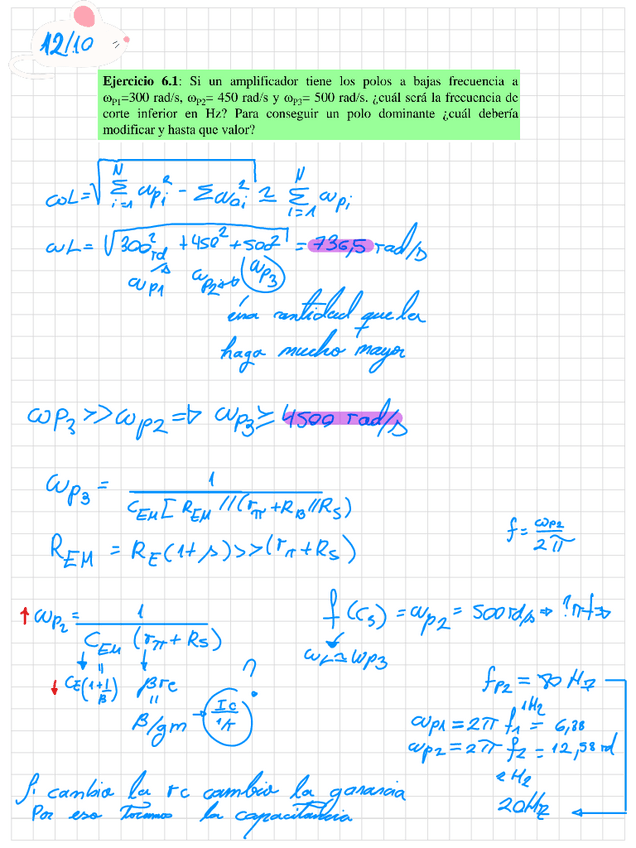 12/10
Ejercicio 6.1: Si un amplificador tiene los polos a bajas frecuencia a
ωP1=300 rad/s, ωP2= 450 rad/s y ωP3= 500 rad/s. ¿cuál será la frecuencia de
corte inferior en Hz? Para conseguir un polo dominante ¿cuál debería
modificar y hasta que valor?
ωL = √(∑ᵢ₌₁ᴺ ωpi² - ∑ωoi²) ≃ ∑ᵢ₌₁ᴺ ωpi
ωL = √(300² + 450² + 500²) = 736,5 rad/s
ωp1 ωp2 ωp3
una cantidad que la
haga mucho mayor
ωP3 >> ωp2 => ωp3 ≥ 4500 rad/s
ωp3 = 1 / CEM [REM // (rπ + RB // RS)
REM = RE (1+β) >> (rπ + RS)
f = ωp2 / 2π
↑ ωp2 = 1 / CEM (rπ + RS)
↓ CE(1+1/β) βre
β/gm → Ic
?
f(Cs) = ωp2 = 500 rd/s
ωL ≃ ωp3
fp2 = 80 Hz
1Hz
ωp1 = 2π f1 = 6,28
ωp2 = 2π f2 = 12,58 rd
2 Hz
20Hz
Si cambio la rc cambio la ganancia
Por eso tocamos la capacitancia